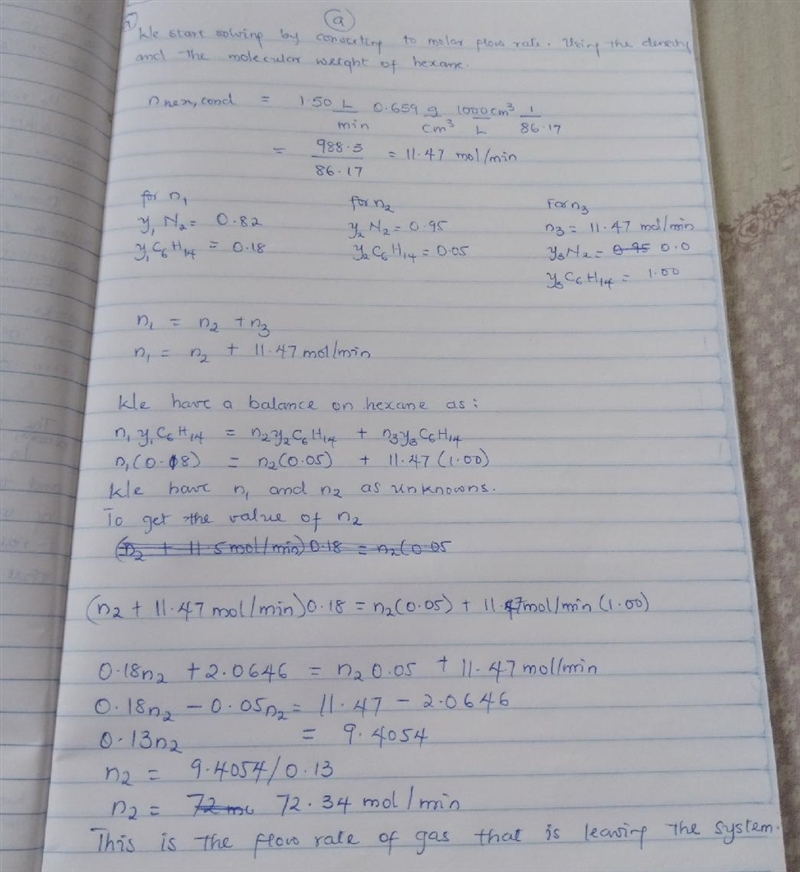 a
We start solving by converting to molar flow rate. Using the density
and the molecular weight of hexane.
n hex, cond = 1.50 L/min 0.659 g/cm³ 1000cm³/L 1/86.17
= 988.5/86.17 = 11.47 mol/min
for n₁ for n₂ For n₃
y₁N₂ = 0.82 y₂N₂ = 0.95 n₃ = 11.47 mol/min
y₁C₆H₁₄ = 0.18 y₂C₆H₁₄ = 0.05 y₃N₂ = 0.95 0.0
y₃C₆H₁₄ = 1.00
n₁ = n₂ + n₃
n₁ = n₂ + 11.47 mol/min
We have a balance on hexane as:
n₁y₁C₆H₁₄ = n₂y₂C₆H₁₄ + n₃y₃C₆H₁₄
n₁(0.18) = n₂(0.05) + 11.47(1.00)
We have n₁ and n₂ as unknowns.
To get the value of n₂
(n₂ + 11.5mol/min)0.18 = n₂(0.05
(n₂ + 11.47 mol/min)0.18 = n₂(0.05) + 11.47mol/min(1.00)
0.18n₂ + 2.0646 = n₂0.05 + 11.47 mol/min
0.18n₂ - 0.05n₂ = 11.47 - 2.0646
0.13n₂ = 9.4054
n₂ = 9.4054/0.13
n₂ = 72.34 mol/min
This is the flow rate of gas that is leaving the system.